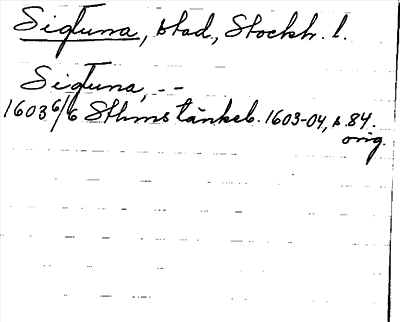 Sigtuna, stad, Stockh. l.
Sigtuna, --
1603 6/6 Sthms tänkeb. 1603-04, s. 84.
orig.